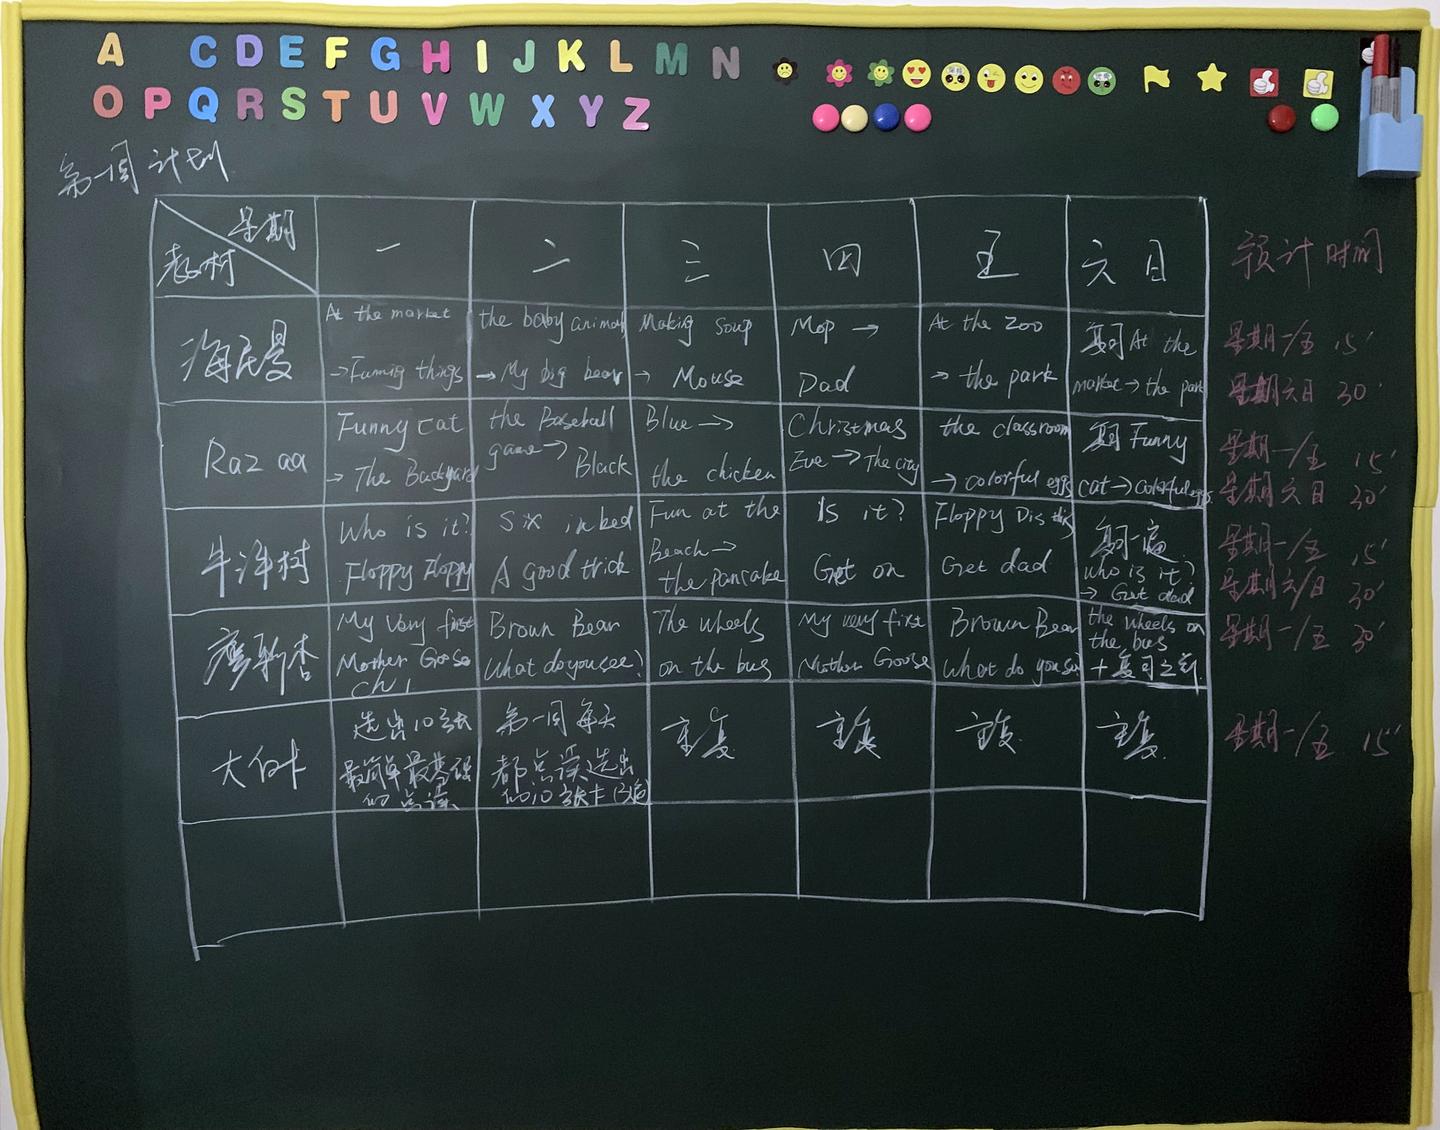 A CDEFGHIJKLMN
OPQRSTUVWXYZ
第一周计划
星期
教材
一 二 三 四 五 六 日 预计时间
海尼曼
At the market
→ Funny things
the baby animal
→ My big bear
Making Soup
→ Mouse
Mop →
Dad
At the Zoo
→ the park
复习 At the
market → the park
星期一/五 15'
星期六日 30'
Raz aa
Funny cat
→ The Backyard
the Baseball
game →
Black
Blue →
the chicken
Christmas
Eve → The city
the classroom
→ colorful eggs
复习 Funny
cat → colorful eggs
星期一/五 15'
星期六日 30'
牛津树
Who is it?
Floppy Floppy
Six in bed
A good trick
Fun at the
Beach →
the pancake
Is it?
Get on
Floppy Dis this
Get dad
复习一遍
who is it?
→ Get dad
星期一/五 15'
星期六/日 30'
廖彩杏
My Very first
Mother Goose
Ch 1
Brown Bear
What do you see?
The wheels
on the bus
My very first
Mother Goose
Brown Bear
What do you see
the wheels on
the bus
+ 复习之前
星期一/五 30'
大白卡
选出10张
最简单最基础
的点读
第一周每天
都点读选出
的10张卡
重复
重复
重复
重复
星期一/五 15'